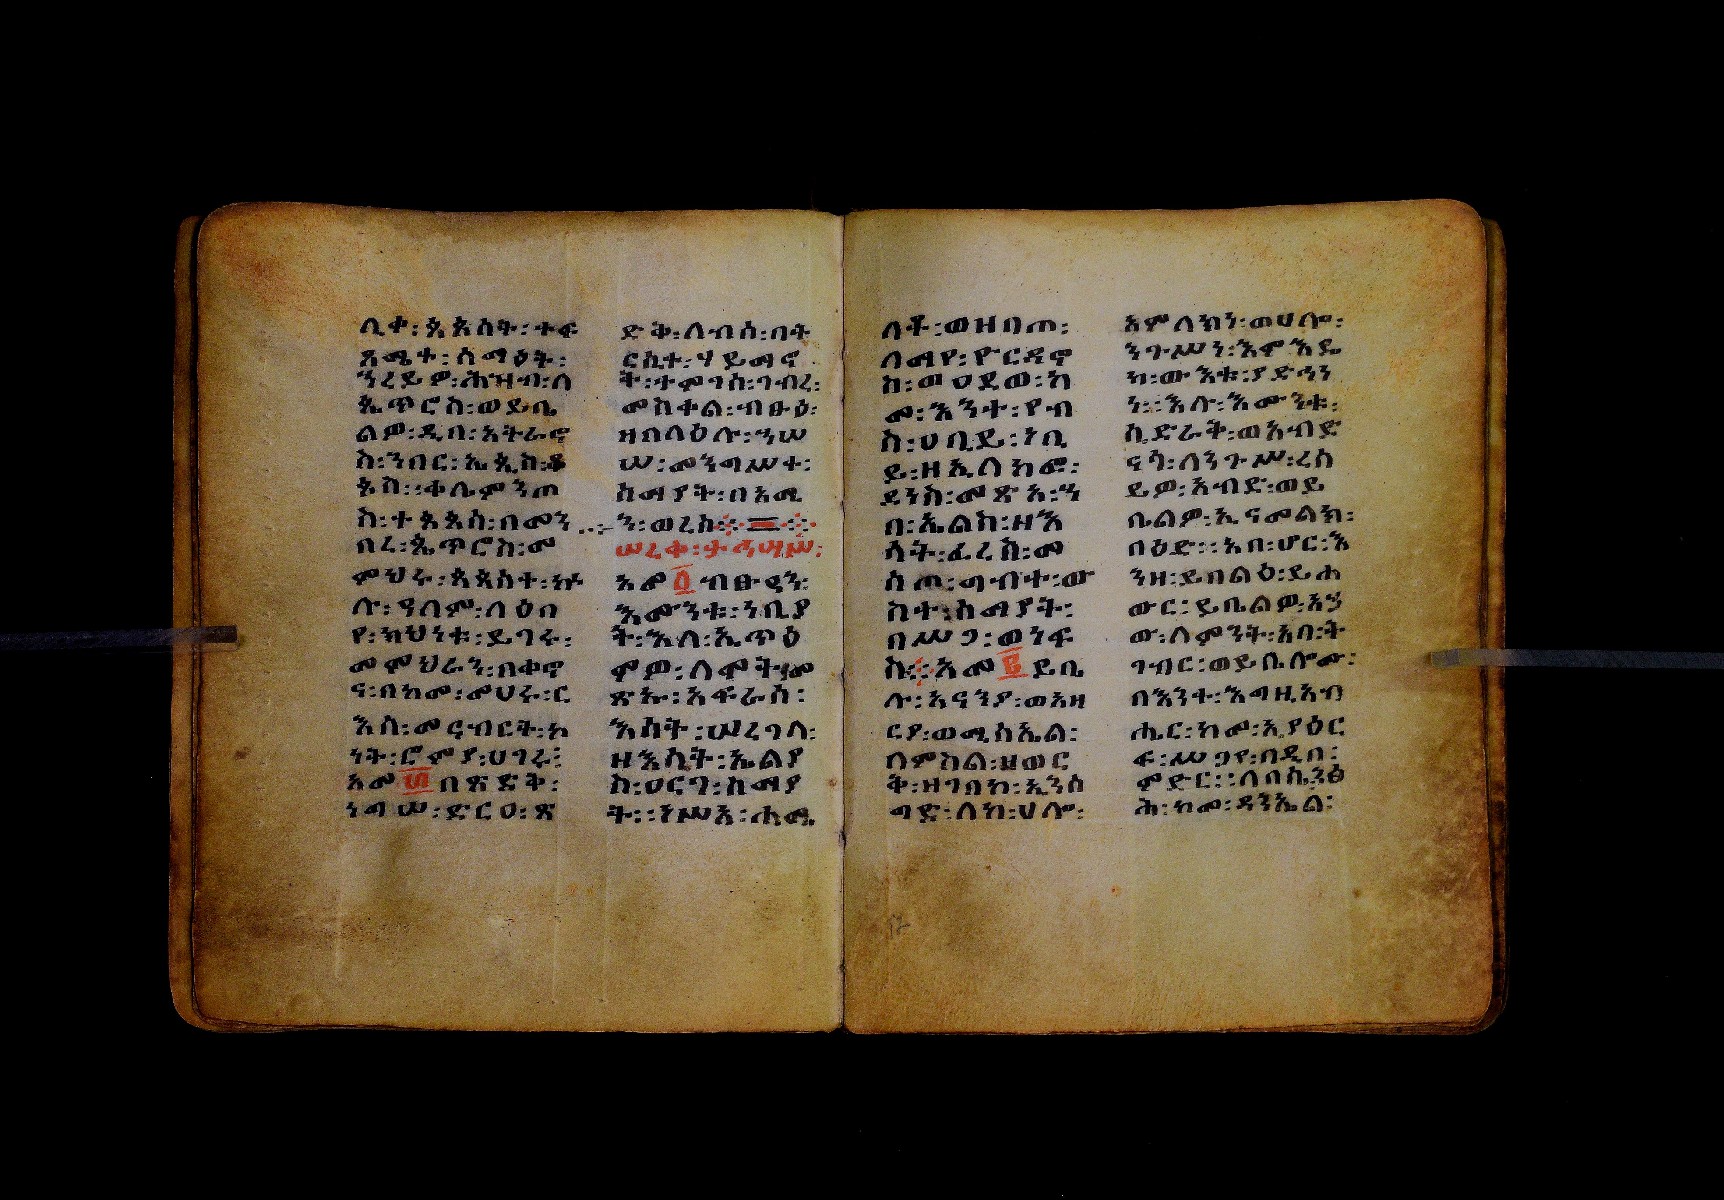 ሊቀ፡ጳጳሳት፡ተፍ
ጻሜተ፡ስማዕት፡
ንረይዎ፡ሕዝብ፡ለ
ጴጥሮስ፡ወይቤ
ልዎ፡ዲበ፡አትራኖ
ስ፡ንበር፡ኤጲስ፡ቆ
ጶስ፡፡ቀሌምንጦ
ስ፡ተጳጳስ፡በመን
በረ፡ጴጥሮስ፡መ
ምህሩ፡ጳጳስተ፡ኵ
ሉ፡ዓለም፡ለዕበ
የ፡ክህነቱ፡ይገሩ፡
መምህራን፡በቀኖ
ና፡በከመ፡መሀሩ፡ር
እሰ፡መርብርት፡ከ
ነት፡ሮምያ፡ሀገረ፡
አመ፴በጽድቅ፡
ነግሠ፡ድርዐ፡ጽ
ድቅ፡ለብሰ፡በት
ርሲተ፡ሃይማኖ
ት፡ተምገሰ፡ገብረ፡
መስቀል፡ብፁዕ፡
ዘበላዕሉ፡ኀሠ
ሠ፡መንግሥተ፡
ሰማያት፡በአሚ
ን፡ወረሰ፡፡
ሠረቀ፡ታኅሣሥ፡
አመ፩ብፁዓን፡
እሙንቱ፡ነቢያ
ት፡እለ፡ኢጥዕ
ምዎ፡ለሞት፡መ
ጽኡ፡አፍራሰ፡
እሳት፡ሠረገላ፡
ዘእሳት፡ኤልያ
ስ፡ዐርገ፡ሰማያ
ት፡፡ነሥአ፡ሐሜ
ላቶ፡ወዘበጠ፡
ለማየ፡ዮርዳኖ
ስ፡ወዐደወ፡ከ
መ፡እንተ፡የብ
ስ፡ሀቢይ፡ነቢ
ይ፡ዘኢለከፎ፡
ደንስ፡መጽአ፡ኀ
በ፡ኤልስ፡ዘእ
ሳት፡ፈረስ፡መ
ሰጦ፡ግብተ፡ው
ስተ፡ሰማያት፡
በሥጋ፡ወነፍ
ስ፡፡አመ፪ይቤ
ሉ፡አናንያ፡ወአዛ
ርያ፡ወሚሳኤል፡
ለምስል፡ዘወር
ቅ፡ዘገበከ፡ኢንሰ
ግድ፡ለከ፡ሀሎ፡
አምላክነ፡ወሀሎ፡
ንጉሥነ፡እምእዴ
ከ፡ውእቱ፡ያድኅን
ነ፡፡እሉ፡እሙንቱ፡
ሲድራቅ፡ወአብድ
ናጎ፡ለንጉሥ፡ረሰ
ይዎ፡አብድ፡ወይ
ቤልዎ፡ኢናመልክ፡
በዕድ፡፡አበ፡ሆር፡እ
ንዘ፡ይበልዕ፡ይሐ
ውር፡ይቤልዎ፡አኃ
ው፡ለምንት፡አባ፡ት
ገብር፡ወይቤሎሙ፡
በእንተ፡እግዚአብ
ሔር፡ከመ፡ኢያዕር
ፍ፡ሥጋየ፡በዲበ፡
ምድር፡፡ለበሴንፅ
ሕ፡ከመ፡ዳንኤል፡